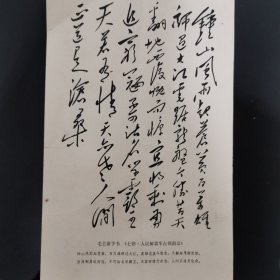 鐘山風雨起蒼黄百万雄
师过大江虎踞龙盘今胜昔天
翻地覆慨而慷宜将剩勇
追穷寇不可沽名学霸王
天若有情天亦老人间
正道是滄桑
毛主席手书 《七律·人民解放军占领南京》
钟山风雨起苍黄，百万雄师过大江。虎踞龙盘今胜昔，天翻地覆慨而慷。
宜将剩勇追穷寇，不可沽名学霸王。天若有情天亦老，人间正道是沧桑。